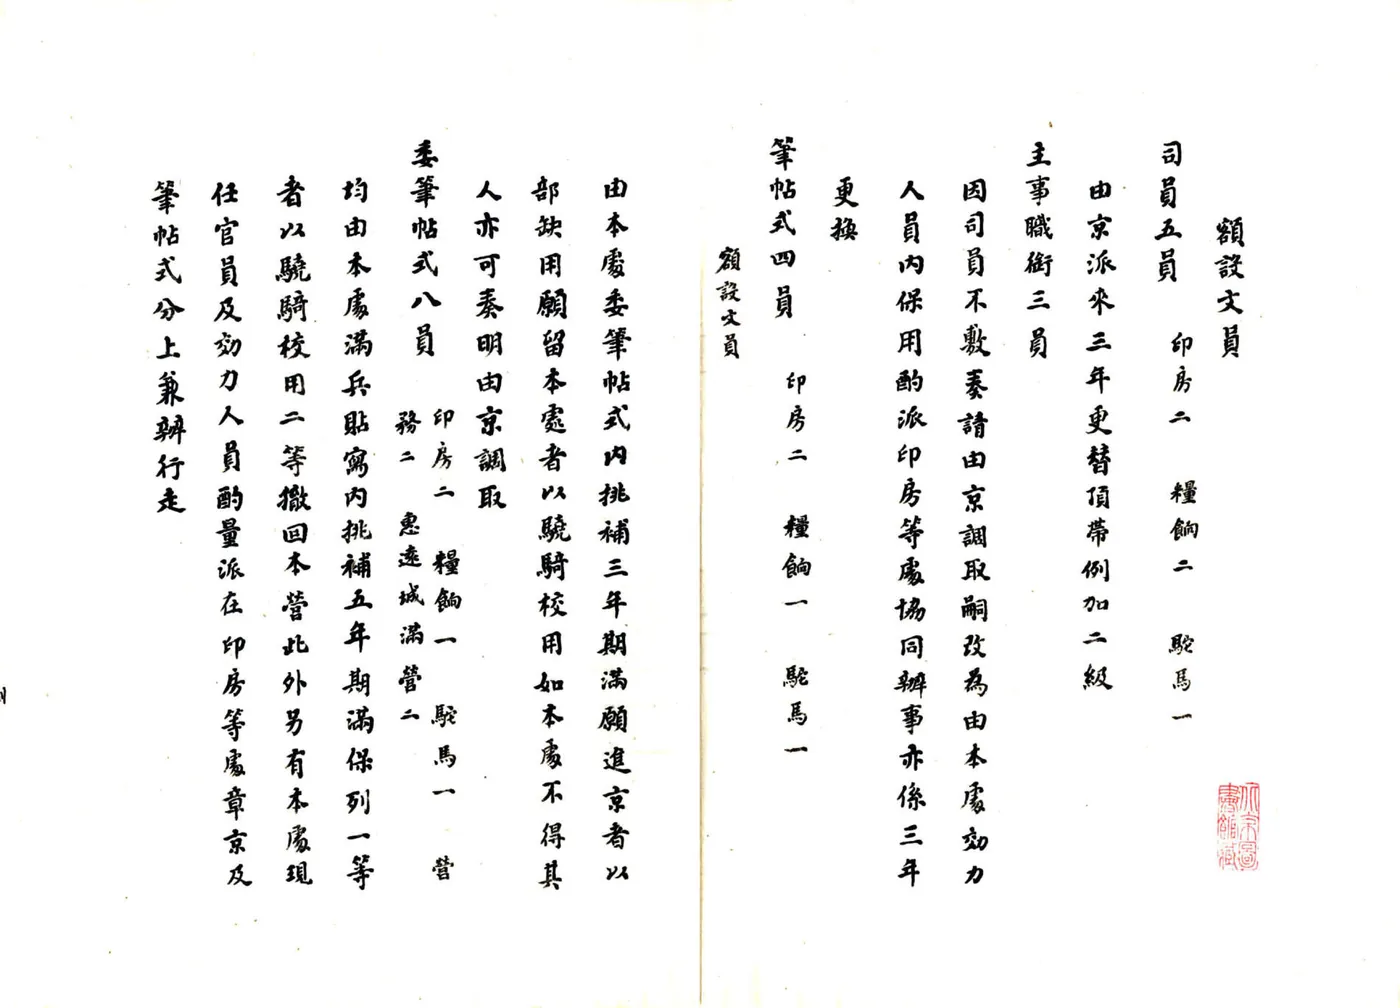 額設文員
司員五員 印房二 糧餉二 駝馬一
由京派來三年更替頂帶例加二級
主事職銜三員
因司員不敷奏請由京調取嗣改為由本處効力
人員內保用酌派印房等處協同辦事亦係三年
更換
筆帖式四員 印房二 糧餉一 駝馬一
額設文員
由本處委筆帖式內挑補三年期滿願進京者以
部缺用願留本處者以驍騎校用如本處不得其
人亦可奏明由京調取
委筆帖式八員 印房二 糧餉一 駝馬一 營
務二 惠遠城滿營二
均由本處滿兵貼寫內挑補五年期滿保列一等
者以驍騎校用二等撤回本營此外另有本處現
任官員及効力人員酌量派在印房等處章京及
筆帖式分上兼辦行走